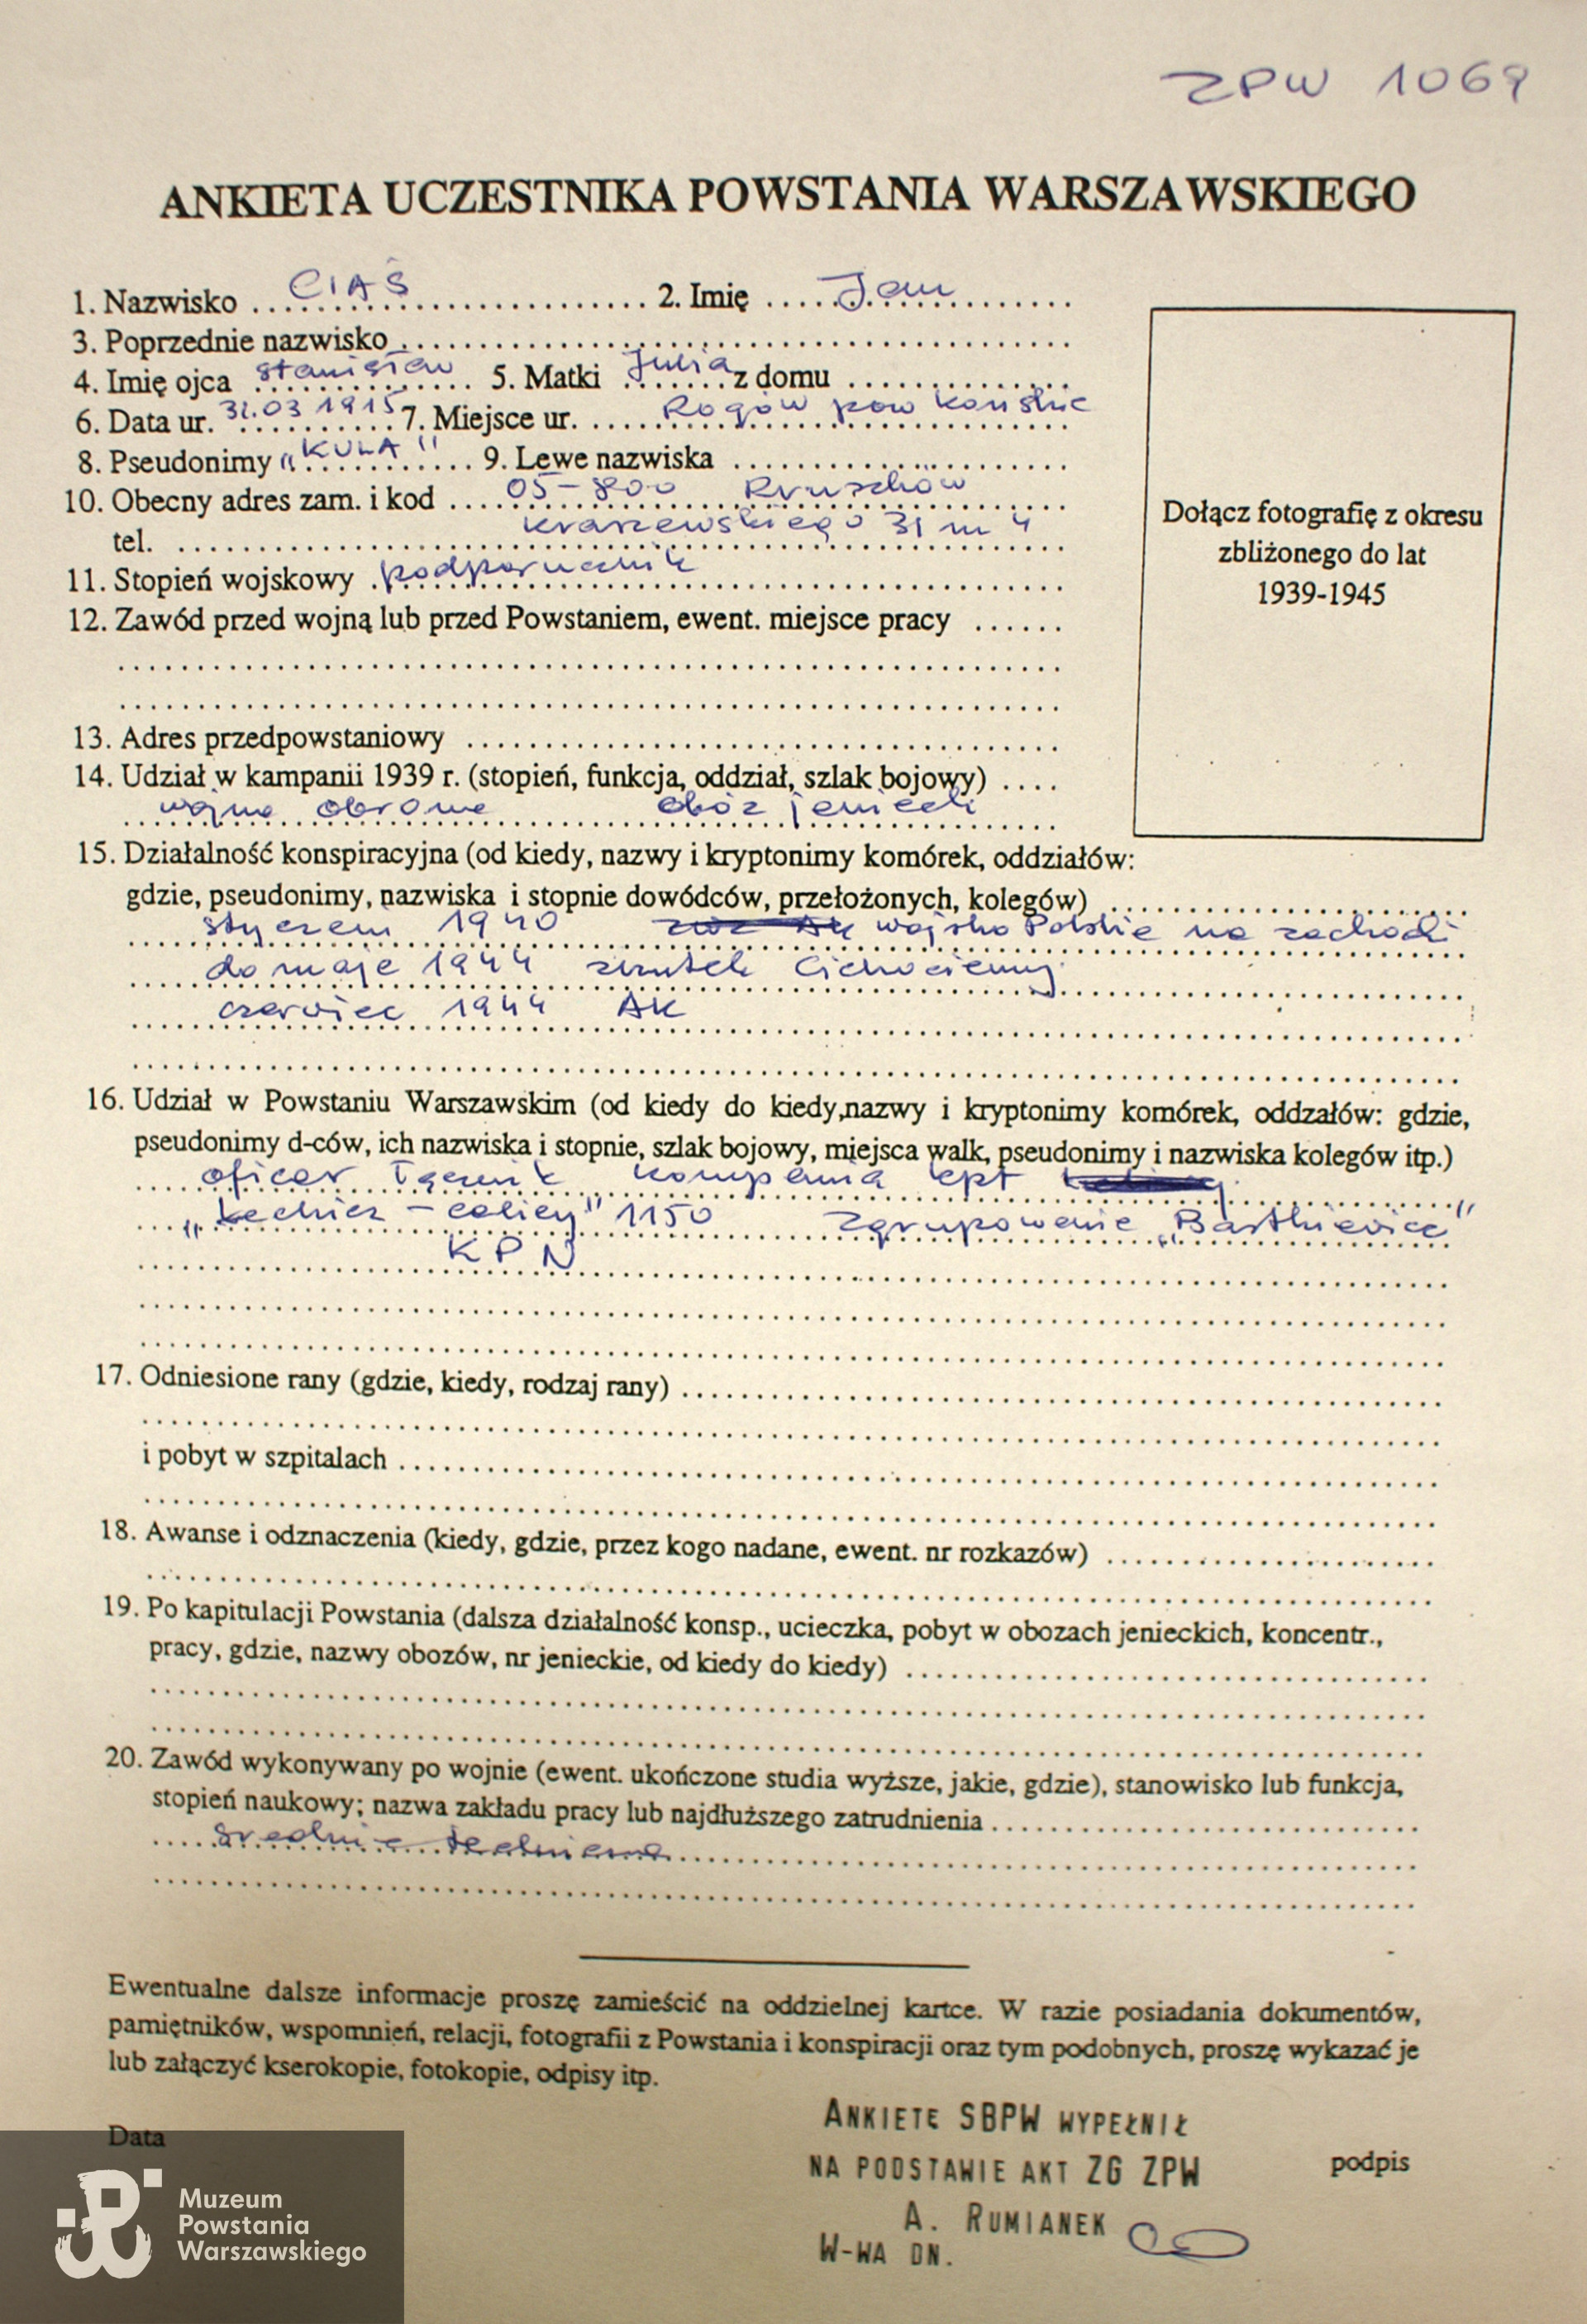 ZPW 1069
ANKIETA UCZESTNIKA POWSTANIA WARSZAWSKIEGO
1. Nazwisko CIAŚ 2. Imię Jan
3. Poprzednie nazwisko
4. Imię ojca Stanisław 5. Matki Julia z domu
6. Data ur. 31.03 1915 7. Miejsce ur. Rogów pow Końskie
8. Pseudonimy „KULA" 9. Lewe nazwiska
10. Obecny adres zam. i kod 05-800 Pruszków
tel. Kraszewskiego 31 m 4
11. Stopień wojskowy podporucznik
12. Zawód przed wojną lub przed Powstaniem, ewent. miejsce pracy
13. Adres przedpowstaniowy
14. Udział w kampanii 1939 r. (stopień, funkcja, oddział, szlak bojowy)
wojna obronna obóz jeniecki
15. Działalność konspiracyjna (od kiedy, nazwy i kryptonimy komórek, oddziałów:
gdzie, pseudonimy, nazwiska i stopnie dowódców, przełożonych, kolegów)
styczeń 1940 ZWZ AK wojsko Polskie na zachodzi
do maja 1944 zrzutek Cichociemny
czerwiec 1944 AK
16. Udział w Powstaniu Warszawskim (od kiedy do kiedy,nazwy i kryptonimy komórek, oddzałów: gdzie,
pseudonimy d-ców, ich nazwiska i stopnie, szlak bojowy, miejsca walk, pseudonimy i nazwiska kolegów itp.)
oficer łącznik kompania kpt
„Lechicz - 1150 zgrupowanie „Bartkiewicz"
KPN
17. Odniesione rany (gdzie, kiedy, rodzaj rany)
i pobyt w szpitalach
18. Awanse i odznaczenia (kiedy, gdzie, przez kogo nadane, ewent. nr rozkazów)
19. Po kapitulacji Powstania (dalsza działalność konsp., ucieczka, pobyt w obozach jenieckich, koncentr.,
pracy, gdzie, nazwy obozów, nr jenieckie, od kiedy do kiedy)
20. Zawód wykonywany po wojnie (ewent. ukończone studia wyższe, jakie, gdzie), stanowisko lub funkcja,
stopień naukowy; nazwa zakładu pracy lub najdłuższego zatrudnienia
średnie techniczne
Dołącz fotografię z okresu
zbliżonego do lat
1939-1945
Ewentualne dalsze informacje proszę zamieścić na oddzielnej kartce. W razie posiadania dokumentów,
pamiętników, wspomnień, relacji, fotografii z Powstania i konspiracji oraz tym podobnych, proszę wykazać je
lub załączyć kserokopie, fotokopie, odpisy itp.
Data
podpis
ANKIETĘ SBPW WYPEŁNIŁ
NA PODSTAWIE AKT ZG ZPW
A. RUMIANEK
W-WA DN.
Muzeum
Powstania
Warszawskiego